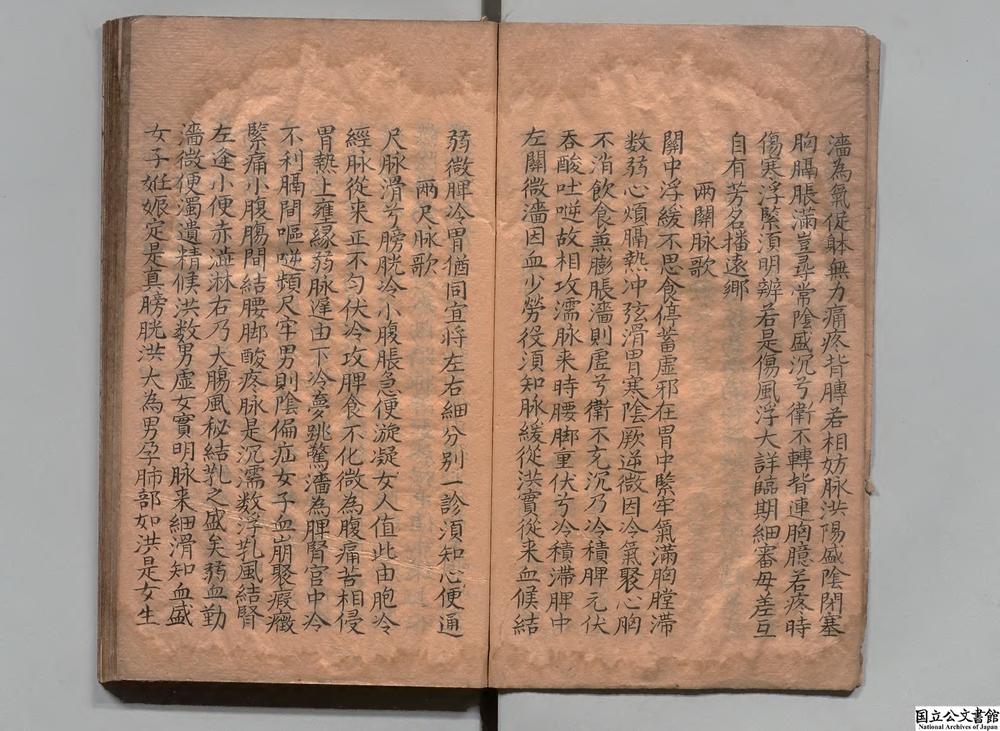 濇為氣促躰無力痛疼背膊若相妨脉洪陽盛陰閉塞
胸膈脹滿豈尋常陰盛沉兮衛不轉背連胸臆若疼時
傷寒浮緊湏明辨若是傷風浮大詳臨期細審毋差互
自有芳名播遠鄉
两關脉歌
關中浮緩不思食停蓄虛邪在胃中緊牢氣滿胸膛滯
数弱心煩膈熱冲弦滑胃寒陰厥逆微因冷氣聚心胸
不消飲食兼膨脹濇則虛兮衛不充沉乃冷積脾元伏
吞酸吐㖕故相攻濡脉来時腰脚重伏兮冷積滯脾中
左關微濇因血少勞役須知脉緩從洪實從来血候結
弱微脾冷胃猶同宜将左右細分別一診須知心便通
兩尺脉歌
尺脉滑兮膀胱冷小腹脹急便漩凝女人值此由胞冷
經脉從来正不勻伏冷攻脾食不化微為腹痛苦相侵
胃熱上壅緣弱脉遲由下冷夢跳驚濇為脾腎官中冷
不利膈間嘔㖕頻尺牢男則陰偏症女子血崩聚瘕癥
緊痛小腹腸間結腰脚酸疼脉是沉濡数浮乳風結腎
左逢小便赤澁淋右乃大腸風秘結乳之盛矣弱血勤
濇微便濁遺精候洪数男虛女實明脉来細滑知血盛
女子妊娠定是真膀胱洪大為男孕肺部如洪是女生
国立公文書館
National Archives of Japan